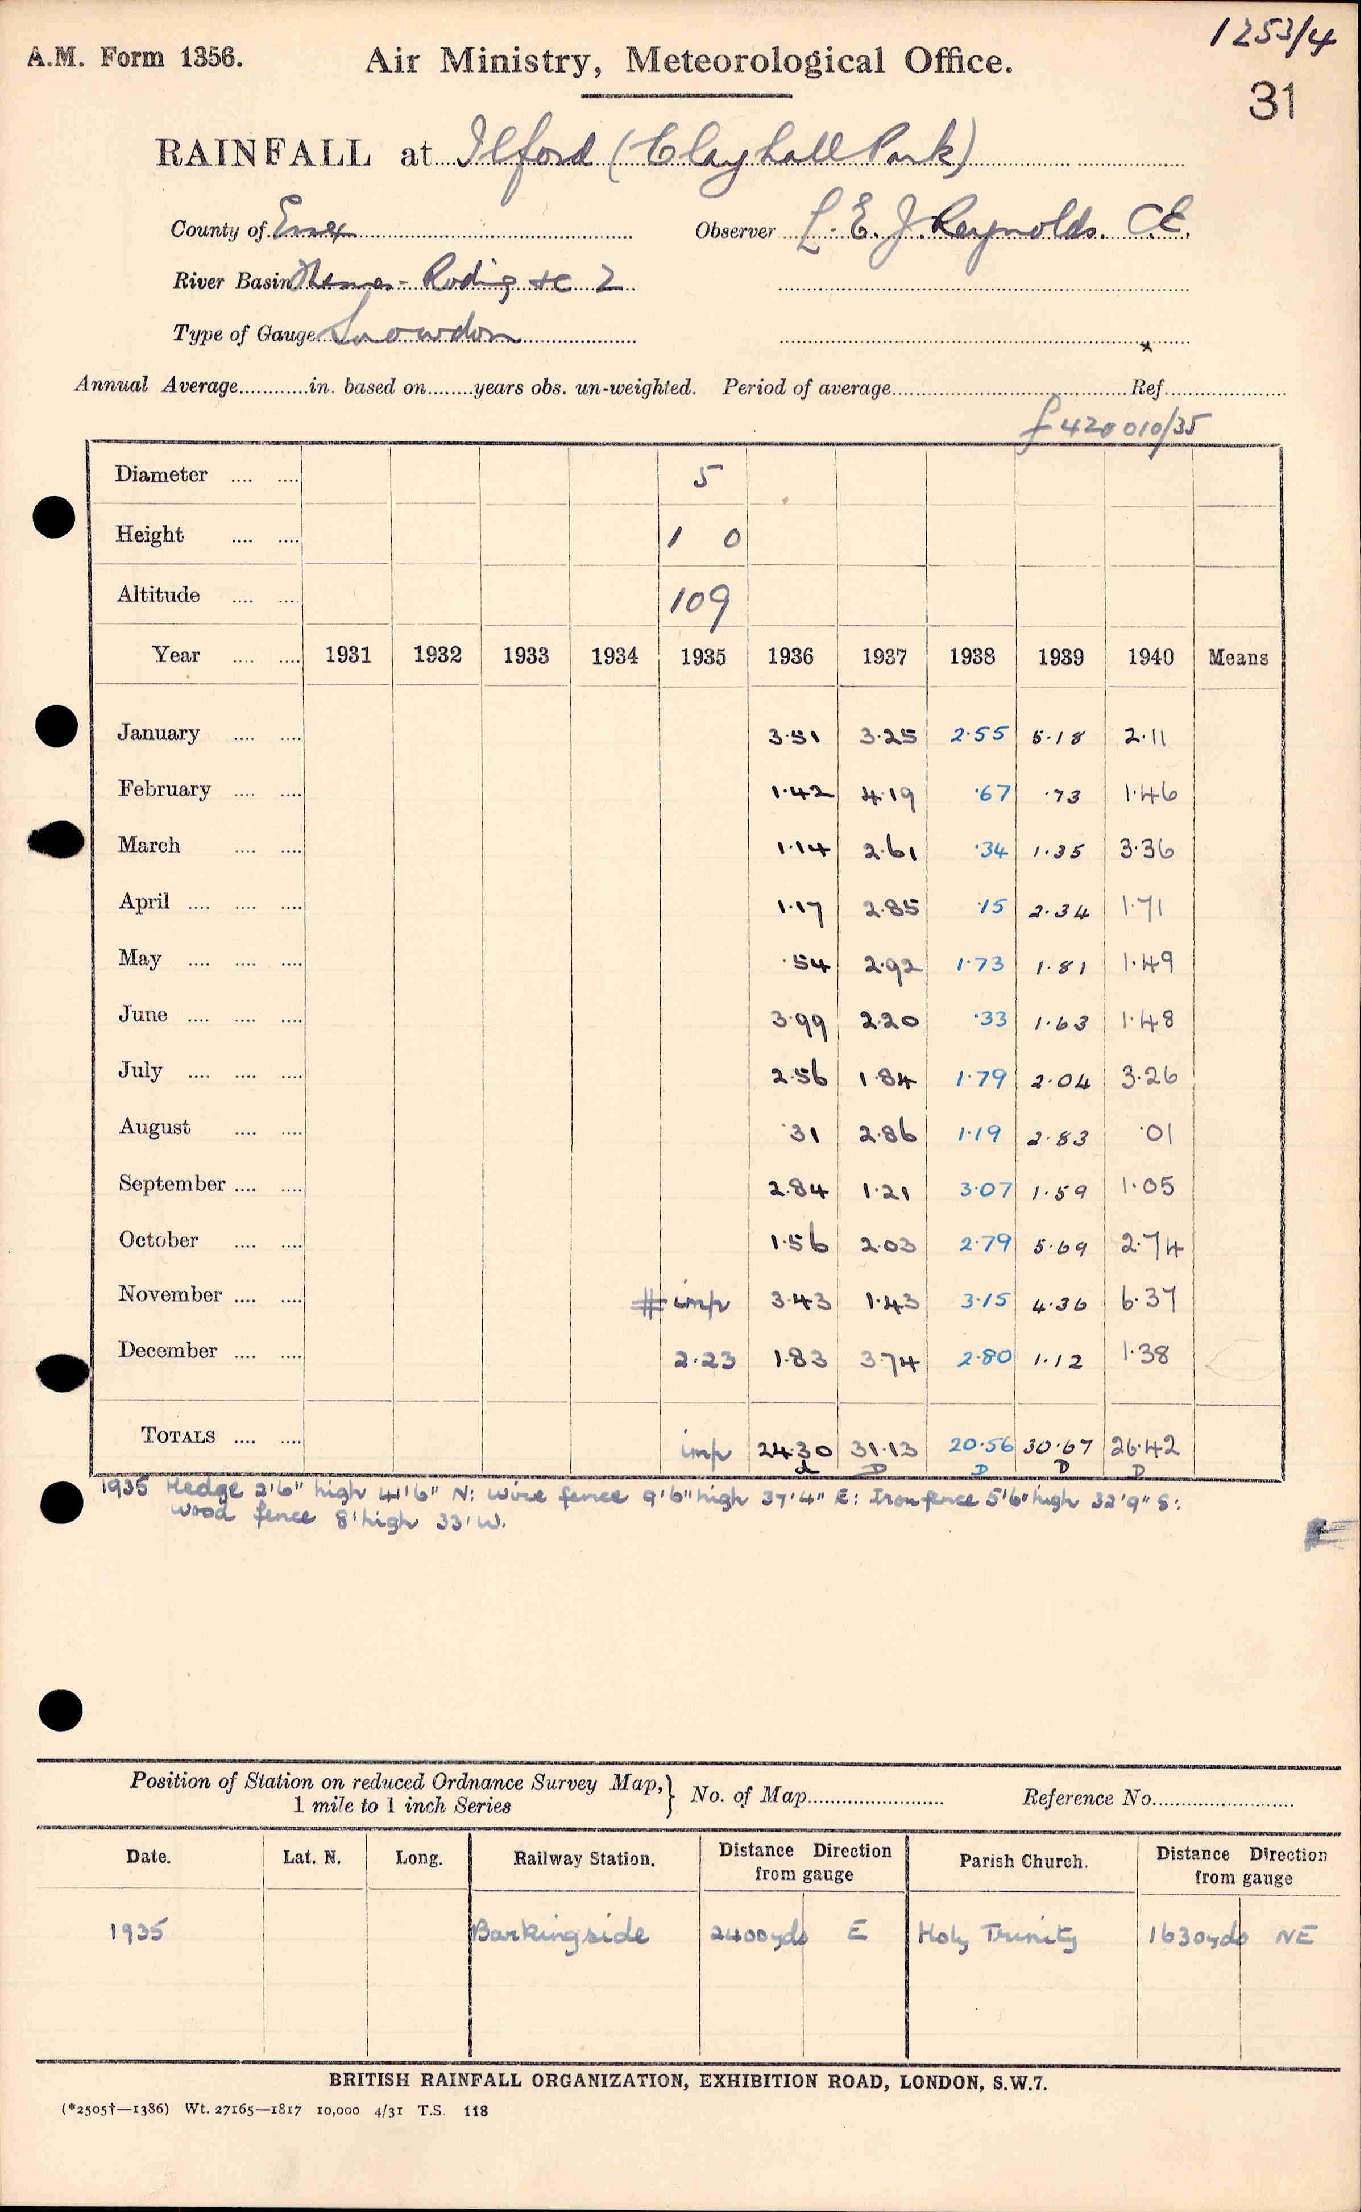 1253/4
A.M. Form 1356. Air Ministry, Meteorological Office.
31
RAINFALL at Ilford (Clayhall Park)
County of Essex Observer L. E. J. Reynolds. C.E.
River Basin Thames - Roding &c 2
Type of Gauge Snowdon
Annual Average............in. based on........years obs. un-weighted. Period of average........................................Ref.....................
f420010/35
Diameter .... .... 5
Height .... .... 1 0
Altitude .... .... 109
Year .... .... 1931 1932 1933 1934 1935 1936 1937 1938 1939 1940 Means
January .... .... 3.51 3.25 2.55 5.18 2.11
February .... .... 1.42 4.19 .67 .73 1.46
March .... .... 1.14 2.61 .34 1.35 3.36
April .... .... .... 1.17 2.85 .15 2.34 1.71
May .... .... .... .54 2.92 1.73 1.81 1.49
June .... .... .... 3.99 2.20 .33 1.63 1.48
July .... .... .... 2.56 1.84 1.79 2.04 3.26
August .... .... .31 2.86 1.19 2.83 .01
September .... .... 2.84 1.21 3.07 1.59 1.05
October .... .... 1.56 2.03 2.79 5.69 2.74
November .... .... # imp 3.43 1.43 3.15 4.36 6.37
December .... .... 2.23 1.83 3.74 2.80 1.12 1.38
TOTALS .... .... imp 24.30 31.13 20.56 30.67 26.42
D D D D
1935 Hedge 2'6" high 41'6" N: Wire fence 9'6" high 37'4" E: Iron fence 5'6" high 32'9" S:
wood fence 8' high 33' W.
Position of Station on reduced Ordnance Survey Map,} No. of Map........................ Reference No.........................
1 mile to 1 inch Series
Date. Lat. N. Long. Railway Station. Distance Direction from gauge Parish Church. Distance Direction from gauge
1935 Barkingside 2400yds E Holy Trinity 1630yds NE
BRITISH RAINFALL ORGANIZATION, EXHIBITION ROAD, LONDON, S.W.7.
(*2505†—1386) Wt. 27165—1817 10,000 4/31 T.S. 118